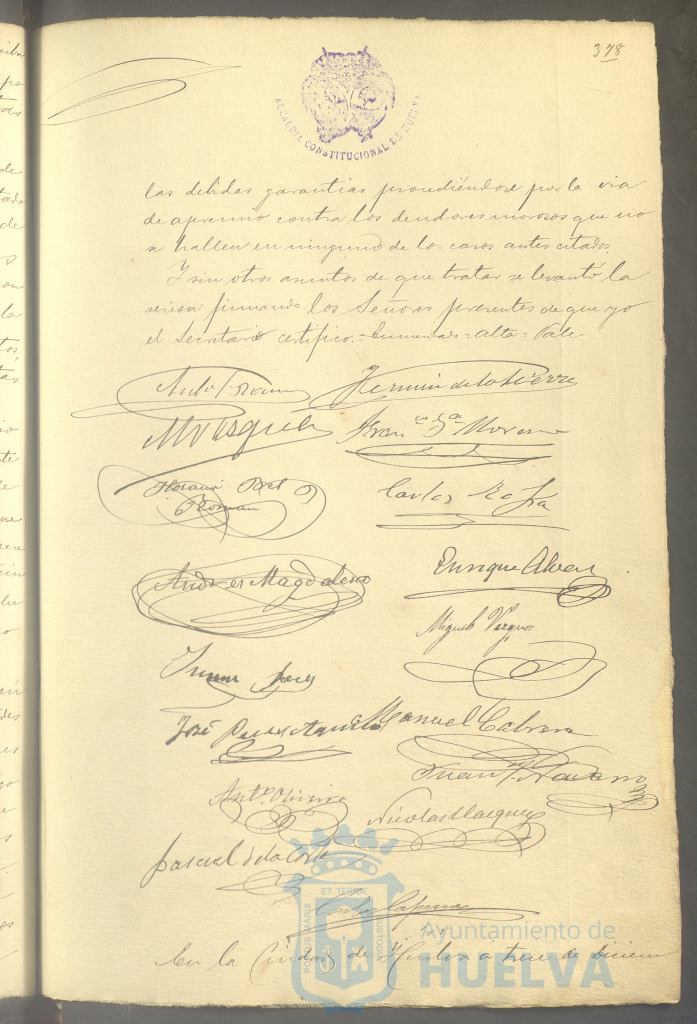 378
ALCALDIA CONSTITUCIONAL DE HUELVA
las debidas garantías procediéndose por la via
de apremio contra los deudores morosos que no
se hallen en ninguno de los casos antes citados.
Y sin otros asuntos de que tratar se levantó la
sesion firmando los Señores presentes de que yo
el Secretario certifico.=Enmendado=alta=Vale
Fermin de la Sierra
M Vazquez
Fran.co G.a Moreno
Horacio Bel
Roman
Carlos
Andres Magdalena
Enrique Alvarez
Miguel Vazquez
José Perez
Manuel Cabrera
Juan Navarro
Ant.o Oliveira
Nicolas Vazquez
Pascual de la Corte
ET TERRAE
PORTUS MARIS
CUSTODIA
Ayuntamiento de
HUELVA
En la Ciudad de Huelva á trece de Diciem